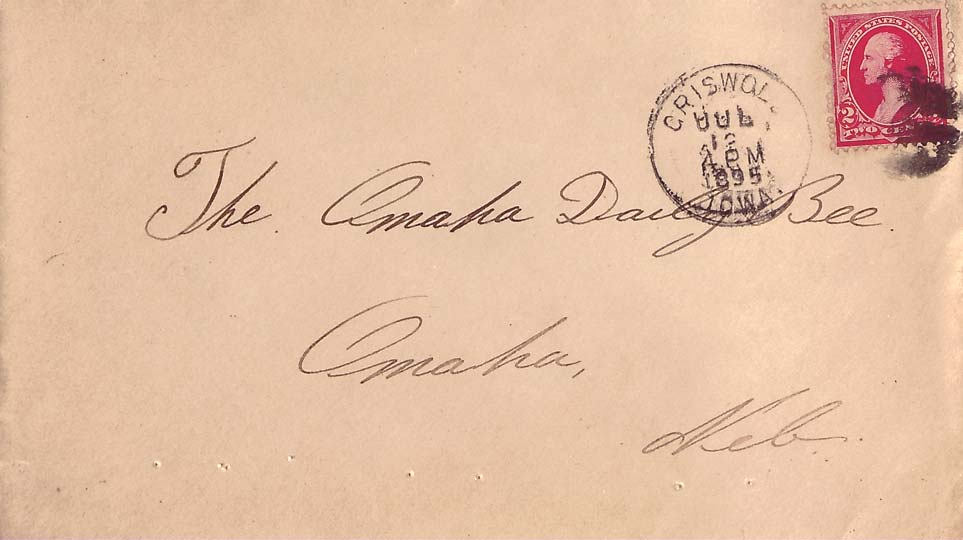 UNITED STATES POSTAGE
2 
TWO CENTS
GRISWOLD
JUL
12
4 PM
1895
IOWA.
The Omaha Daily Bee.
Omaha,
Neb.